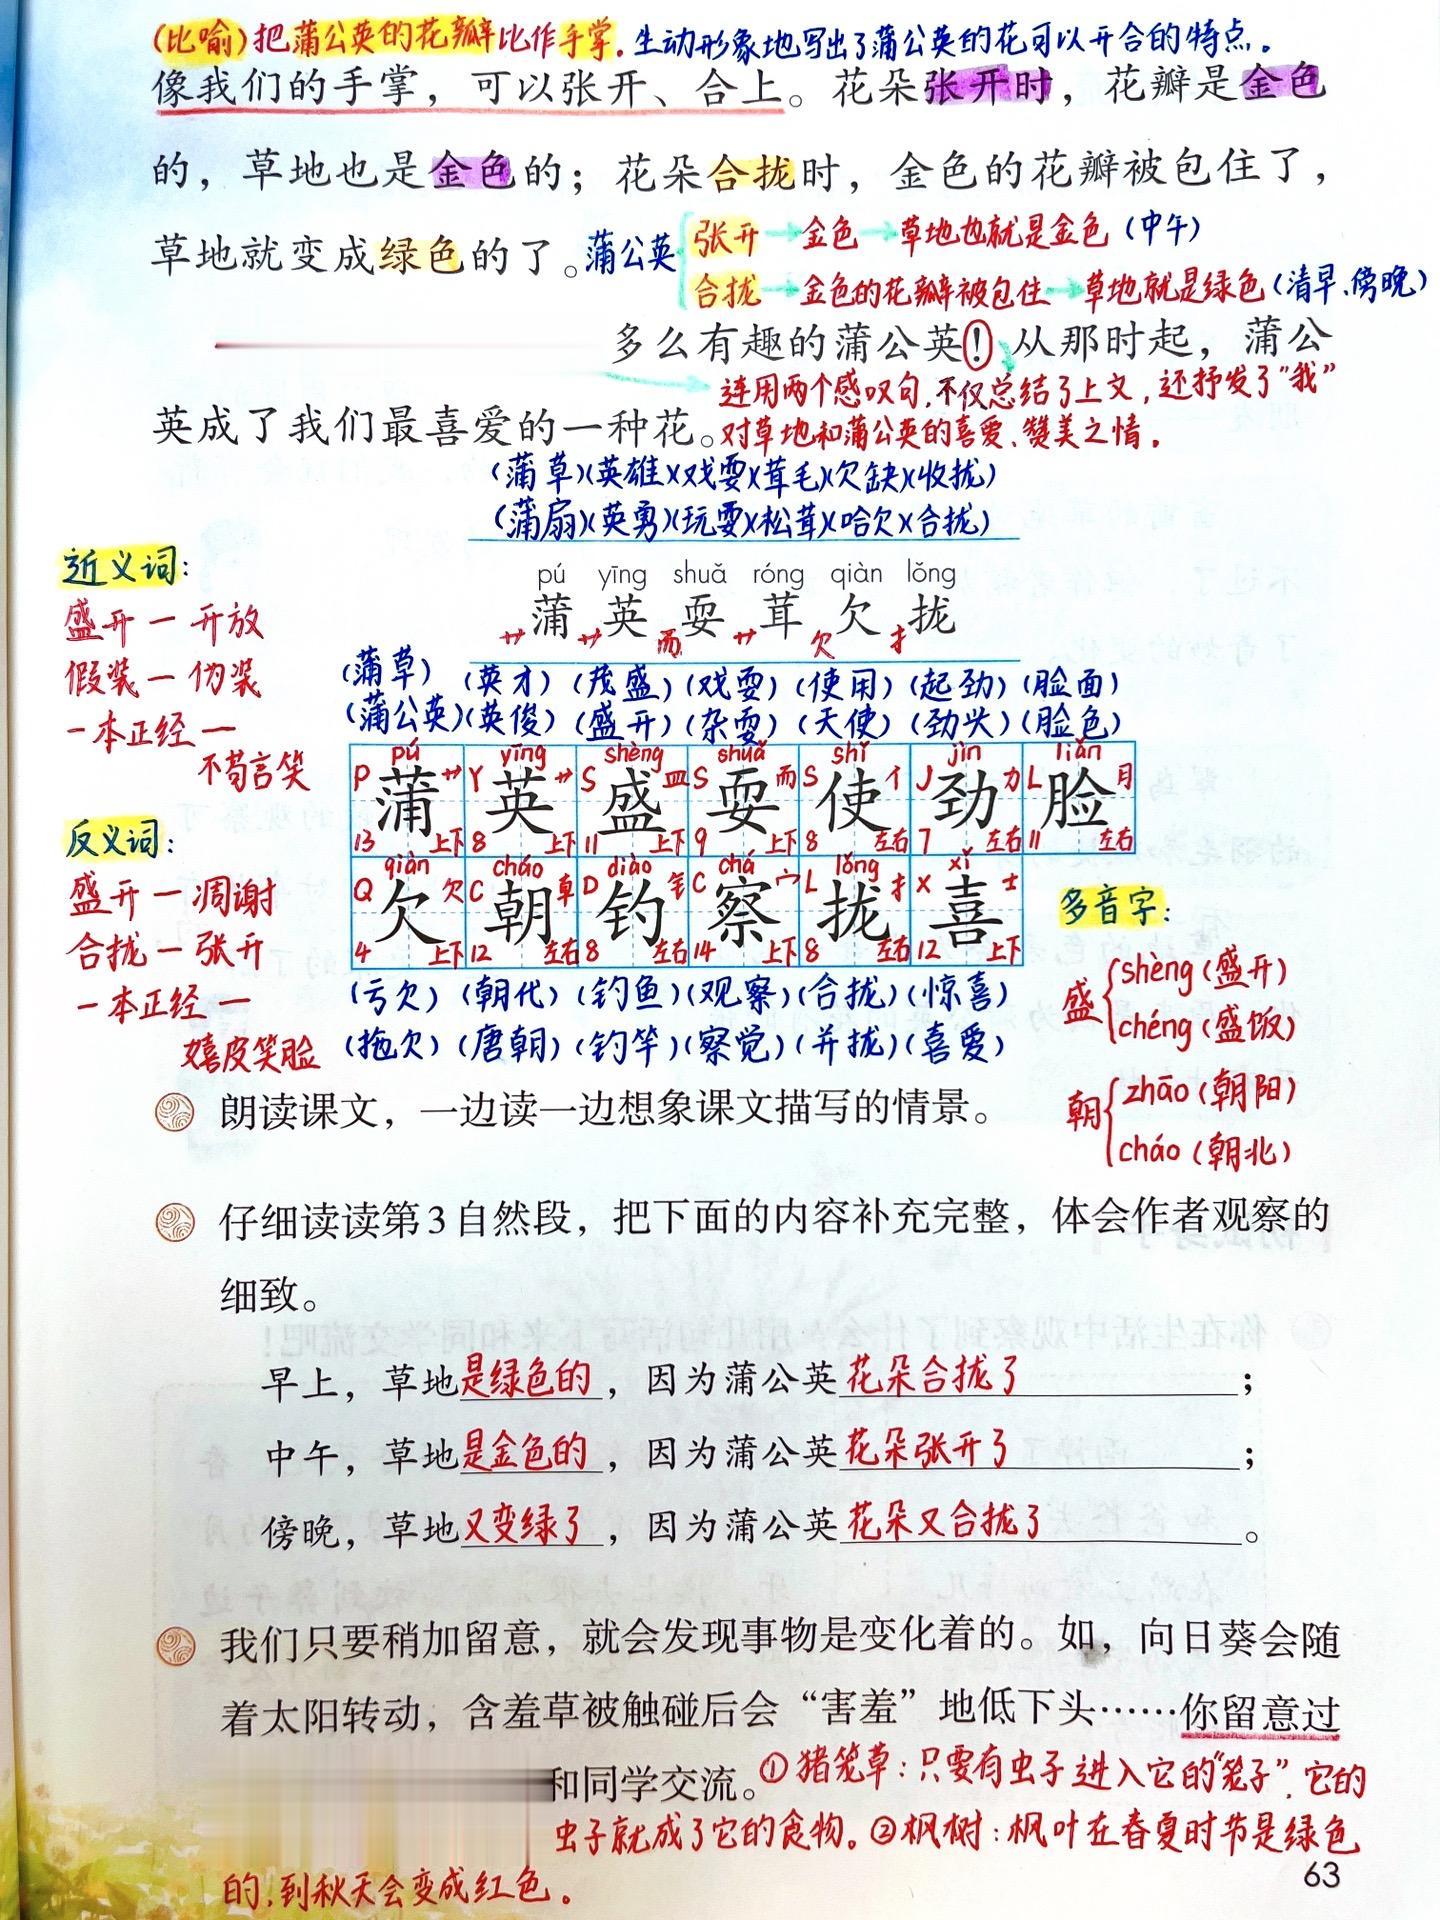 (比喻)把蒲公英的花瓣比作手掌。生动形象地写出了蒲公英的花可以开合的特点。
像我们的手掌，可以张开、合上。花朵张开时，花瓣是金色
的，草地也是金色的；花朵合拢时，金色的花瓣被包住了，
草地就变成绿色的了。
蒲公英
张开→金色→草地也就是金色(中午)
合拢→金色的花瓣被包住→草地就是绿色(清早、傍晚)
多么有趣的蒲公英！从那时起，蒲公
连用两个感叹句，不仅总结了上文，还抒发了"我"
英成了我们最喜爱的一种花。
对草地和蒲公英的喜爱、赞美之情。
(蒲草)(英雄)(戏耍)(茸毛)(欠缺)(收拢)
(蒲扇)(英勇)(玩耍)(松茸)(哈欠)(合拢)
pú yīng shuǎ róng qiàn lǒng
蒲 英 耍 茸 欠 拢
艹 艹 而 艹 欠 扌
近义词：
盛开一开放
假装一伪装
一本正经一
不苟言笑
反义词：
盛开一凋谢
合拢一张开
一本正经一
嬉皮笑脸
(蒲草)(英才)(茂盛)(戏耍)(使用)(起劲)(脸面)
(蒲公英)(英俊)(盛开)(杂耍)(天使)(劲头)(脸色)
pú yīng shèng shuǎ shǐ jìn liǎn
P 艹 Y 艹 S 皿 S 而 S 亻 J 力 L 月
蒲 英 盛 耍 使 劲 脸
13 上下 8 上下 11 上下 9 上下 8 左右 7 左右 11 左右
qiàn cháo diào chá lǒng xǐ
Q 欠 C 卓 D 钅 C 宀 L 扌 X 士
欠 朝 钓 察 拢 喜
4 上下 12 左右 8 左右 14 上下 8 左右 12 上下
(亏欠)(朝代)(钓鱼)(观察)(合拢)(惊喜)
(拖欠)(唐朝)(钓竿)(察觉)(并拢)(喜爱)
多音字：
盛
shèng(盛开)
chéng(盛饭)
朝
zhāo(朝阳)
cháo(朝北)
朗读课文，一边读一边想象课文描写的情景。
仔细读读第3自然段，把下面的内容补充完整，体会作者观察的
细致。
早上，草地是绿色的，因为蒲公英花朵合拢了；
中午，草地是金色的，因为蒲公英花朵张开了；
傍晚，草地又变绿了，因为蒲公英花朵又合拢了。
我们只要稍加留意，就会发现事物是变化着的。如，向日葵会随
着太阳转动，含羞草被触碰后会“害羞”地低下头……你留意过
和同学交流。
①猪笼草：只要有虫子进入它的"笼子"，它的
虫子就成了它的食物。②枫树：枫叶在春夏时节是绿色
的，到秋天会变成红色。
63